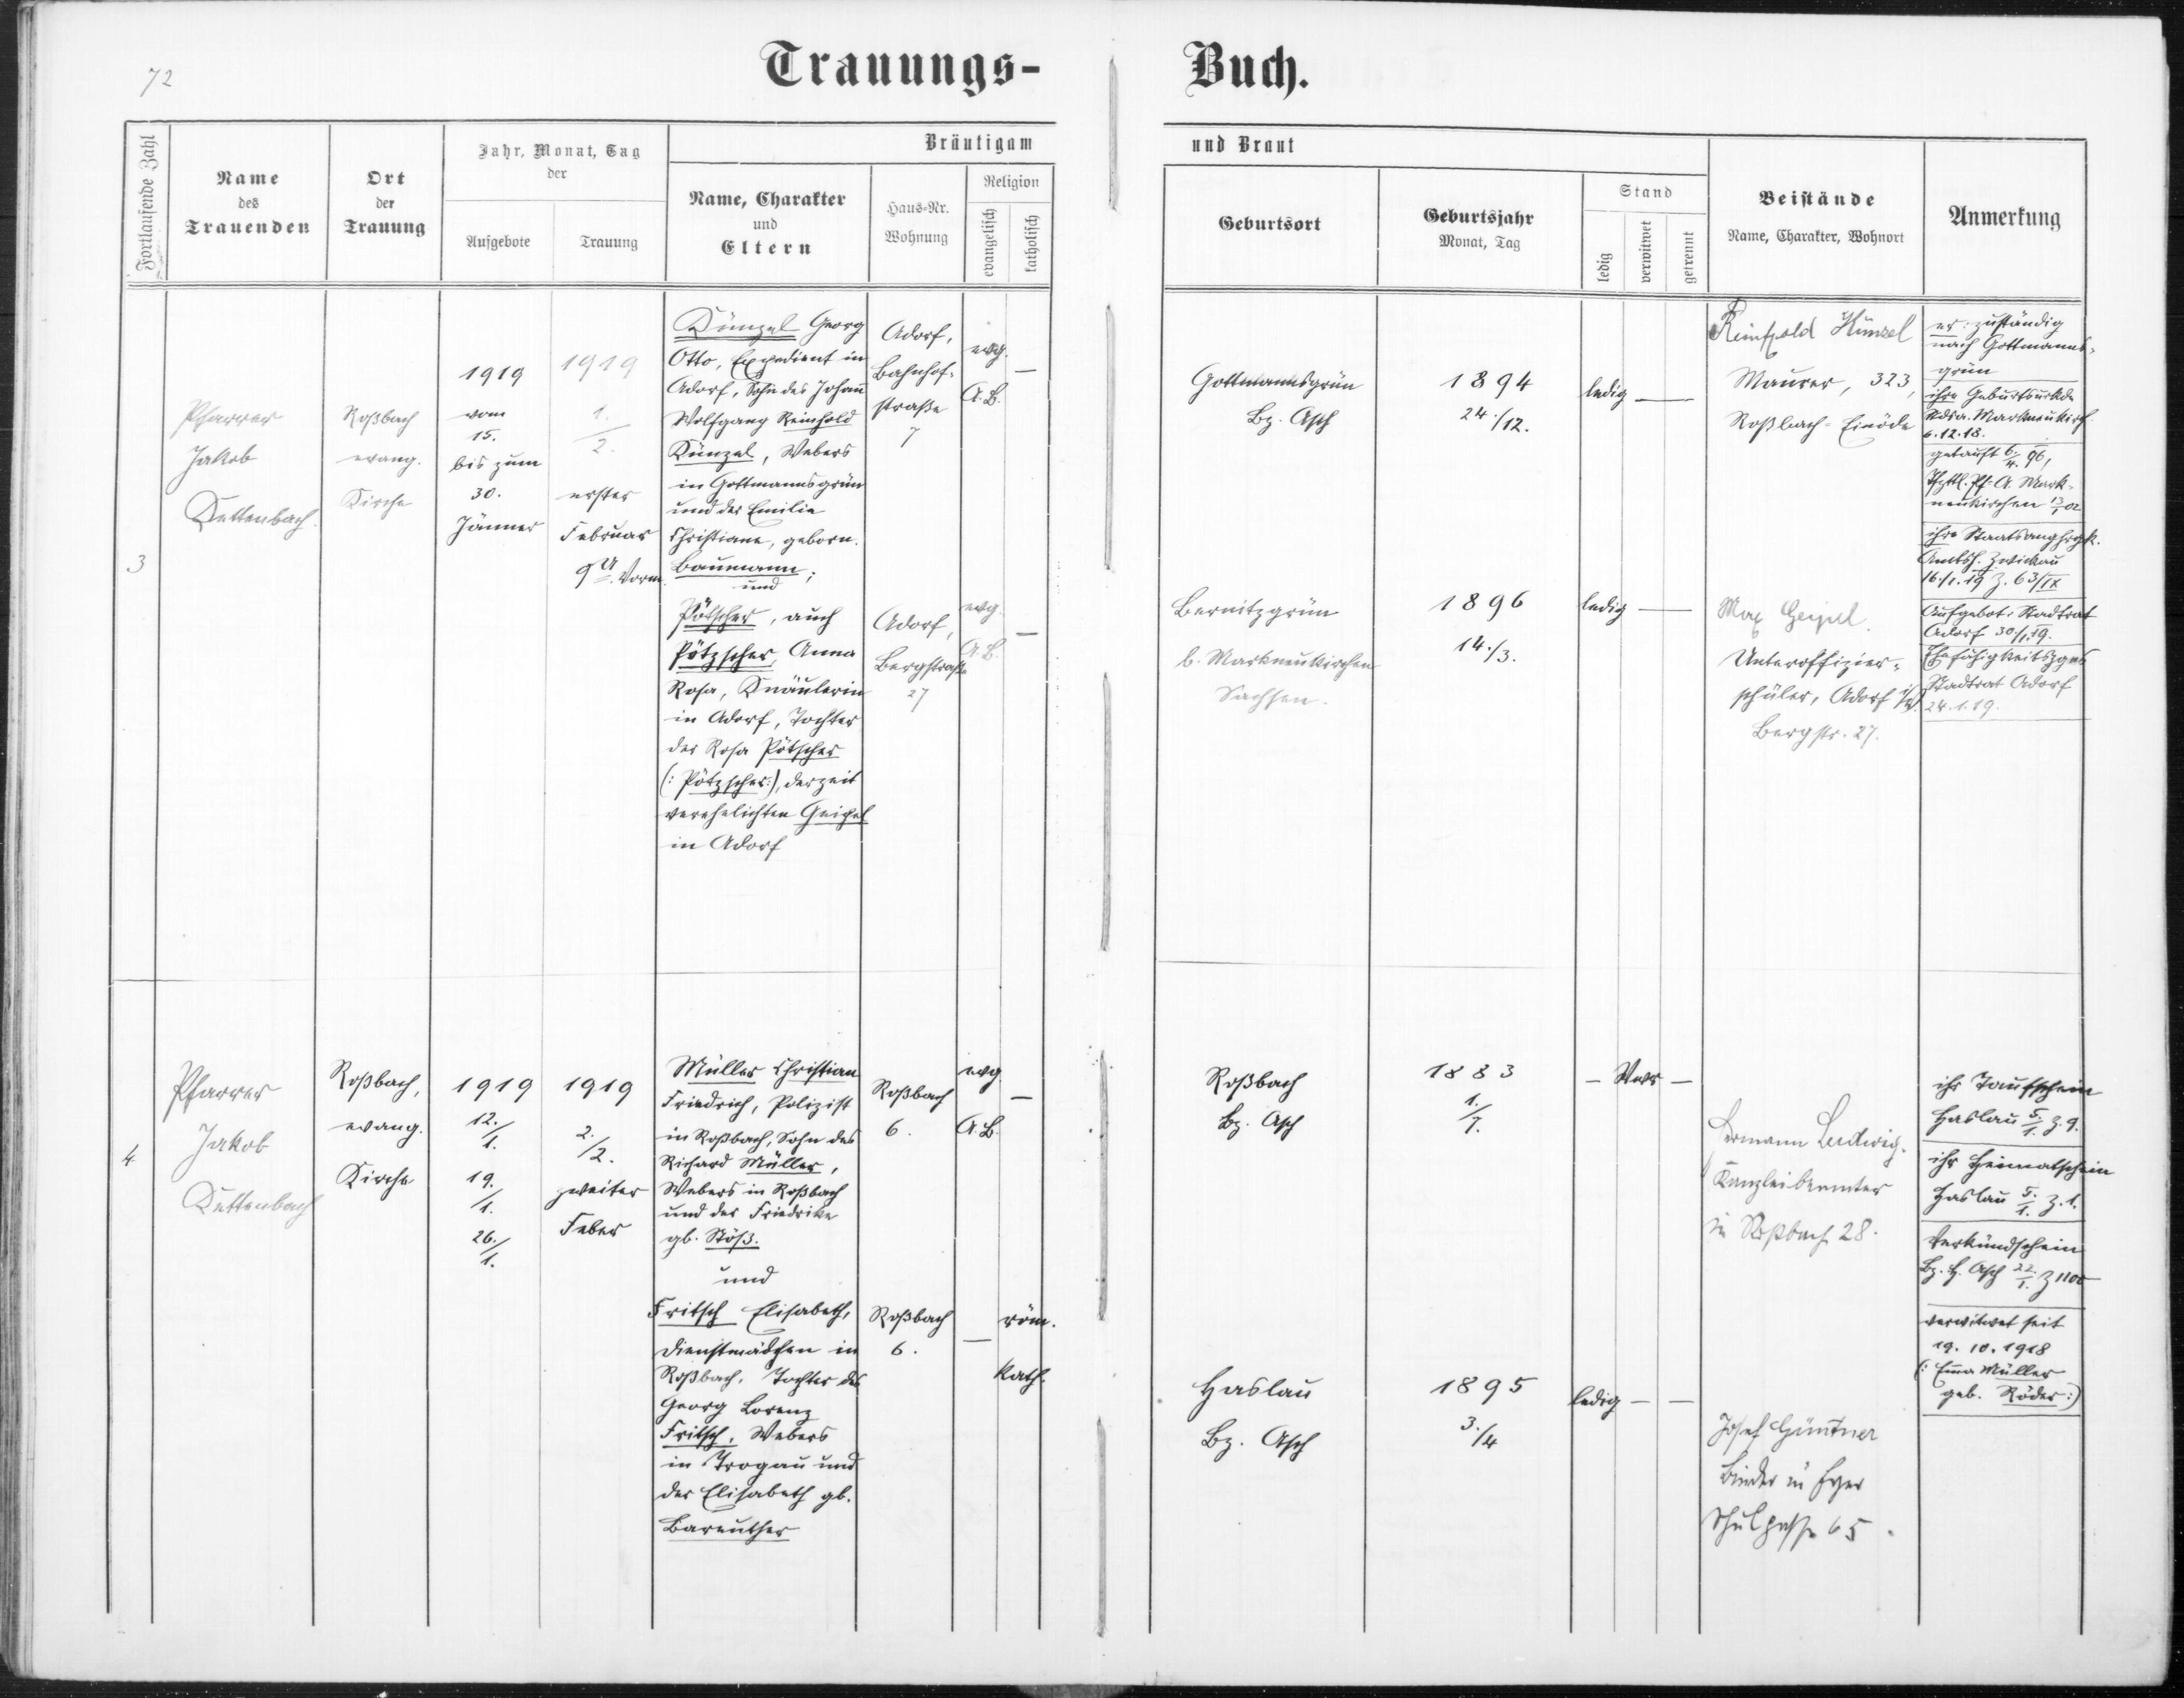 72
Trauungs-
Buch.
Fortlaufende Zahl
Name
des
Trauenden
Ort
der
Trauung
Jahr, Monat, Tag
der
Aufgebote
Trauung
Bräutigam
Name, Charakter
und
Eltern
Haus-Nr.
Wohnung
Religion
evangelisch
katholisch
und Braut
Geburtsort
Geburtsjahr
Monat, Tag
Stand
ledig
verwitwet
getrennt
Beistände
Name, Charakter, Wohnort
Anmerkung
3
Pfarrer
Jakob
Kettenbach.
Roßbach
evang.
Kirche
1919
vom
15.
bis zum
30.
Jänner
1919
1./2.
erster
Februar
9 U. Vorm.
Künzel Georg
Otto, Expedient in
Adorf, Sohn des Johann
Wolfgang Reinhold
Künzel, Webers
in Gottmannsgrün
und der Emilie
Christiane, geborn.
Baumann;
und
Pötscher, auch
Pötzscher, Anna
Rosa, Knäulerin
in Adorf, Tochter
der Rosa Pötscher
(: Pötzscher:), derzeit
verehelichten Geipel
in Adorf
Adorf,
Bahnhof-
straße
7
evg.
A.B.
—
Adorf,
Bergstraße
27
evg.
A.B.
—
Gottmannsgrün
Bz. Asch
1894
24./12.
ledig —
Bernitzgrün
b. Markneukirchen
Sachsen.
1896
14./3.
ledig —
Reinhold Künzel
Maurer, 323,
Roßbach-Einöde
Max Geipel
Unteroffizier-
schüler, Adorf i/V.
Bergstr. 27.
er: zuständig
nach Gottmanns-
grün
ihre Geburtsurkde
Stdsa. Markneukirch.
6.12.18.
getauft 6./4. 96,
Pf. A. Mark-
neukirchen 13/1 02
ihre Staatsanghrgk.
Amtsh. Zwickau
16./1. 19 Z. 63/IX
Aufgebot: Stadtrat
Adorf 30/1. 19.
Ehefähigkeitszgnis
Stadtrat Adorf
24.1.19.
4
Pfarrer
Jakob
Kettenbach
Roßbach,
evang.
Kirche
1919
12./1.
19./1.
26./1.
1919
2./2.
zweiter
Feber
Müller Christian
Friedrich, Polizist
in Roßbach, Sohn des
Richard Müller,
Webers in Roßbach
und der Friedrike
gb. Stöß.
und
Fritsch Elisabeth,
Dienstmädchen in
Roßbach, Tochter des
Georg Lorenz
Fritsch, Webers
in Trogau und
der Elisabeth gb.
Bareuther
Roßbach
6.
evg
A.B.
—
Roßbach
6.
—
röm.
kath.
Roßbach
Bz. Asch
1883
1./7.
— Wwr —
Haslau
Bz. Asch
1895
3./4
ledig — —
Hermann Ludwig.
Kanzleibeamter
in Roßbach 28.
Josef Güntner
Binder in Eger
Schulgasse 65.
ihr Taufschein
Haslau 5./1. Z. 9.
ihr Heimatschein
Haslau 5./1. Z. 1.
Verkündschein
Bz. H. Asch 22./1. Z 1100
verwitwet seit
19. 10. 1918
(: Emma Müller
geb. Röder:)